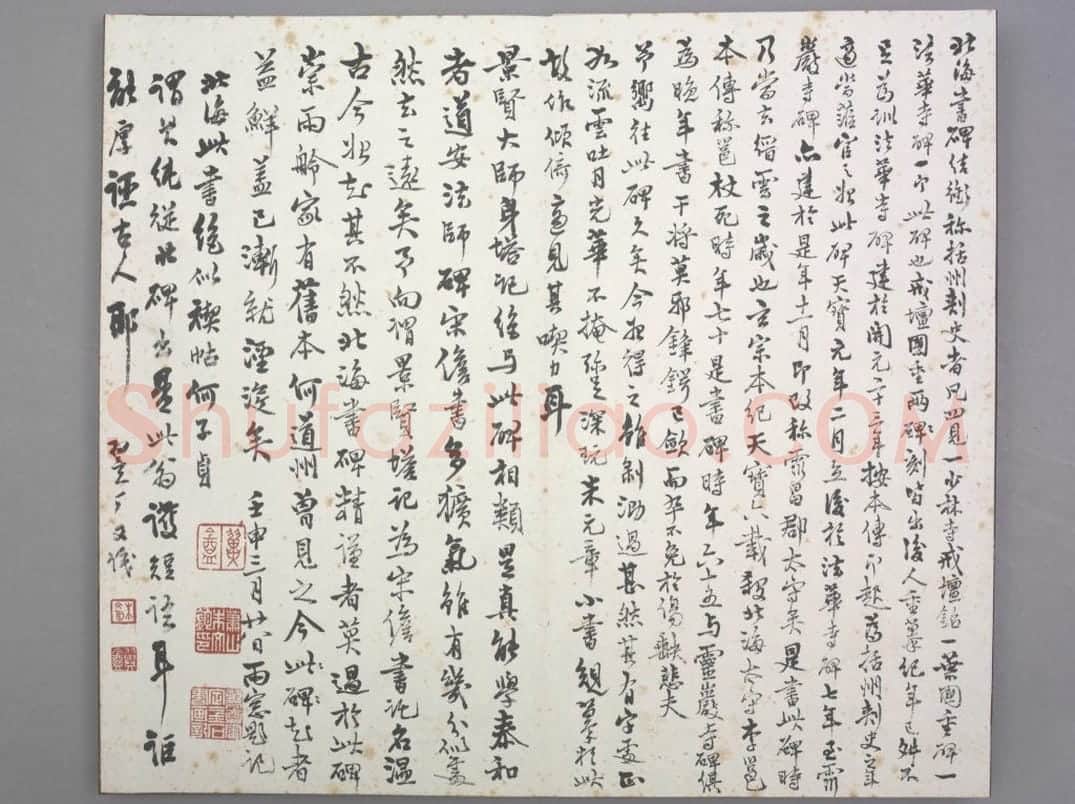 北海書碑結銜稱括州刺史者凡四見一少林寺戒壇銘一葉國重碑一
法華寺碑一即此碑也戒壇國重兩碑刻皆出後人重摹紀年已舛不
足為訓法華寺碑建於開元二十三年按本傳即起為括州刺史之年
適當蒞官之始此碑天寶元年二月立後於法華寺碑七年至靈
巖寺碑亦建於是年十一月即改稱靈昌郡太守矣是書此碑時
乃當去縉雲之歲也玄宗本紀天寶六載殺北海太守李邕
本傳稱邕杖死時年七十是書碑時年六十五与靈巖寺碑俱
為晚年書干將莫邪鋒鍔已斂而卒不免於傷缺悲夫
嚮往此碑久矣今始得之雖剝泐過甚然其有字處正
如流雲吐月光華不掩殊足深玩米元章小書規摹於此
故作傾倚遂見其喫力耳
景賢大師身塔記絕与此碑相類是真能學泰和
者道安法師碑宋儋書多獷氣雖有幾分似處
然去之遠矣予向謂景賢塔記為宋儋書託名溫
古今始知其不然北海書碑精謹者莫過於此碑
崇雨舲家有舊本何道州曾見之今此碑知者
益鮮蓋已漸就湮沒矣 壬申三月廿八日雨窓題記
北海此書絕似禊帖何子貞
謂其純從北碑出是此翁護短語耳詎
能厚誣古人耶 又識
Shufaziliao.COM